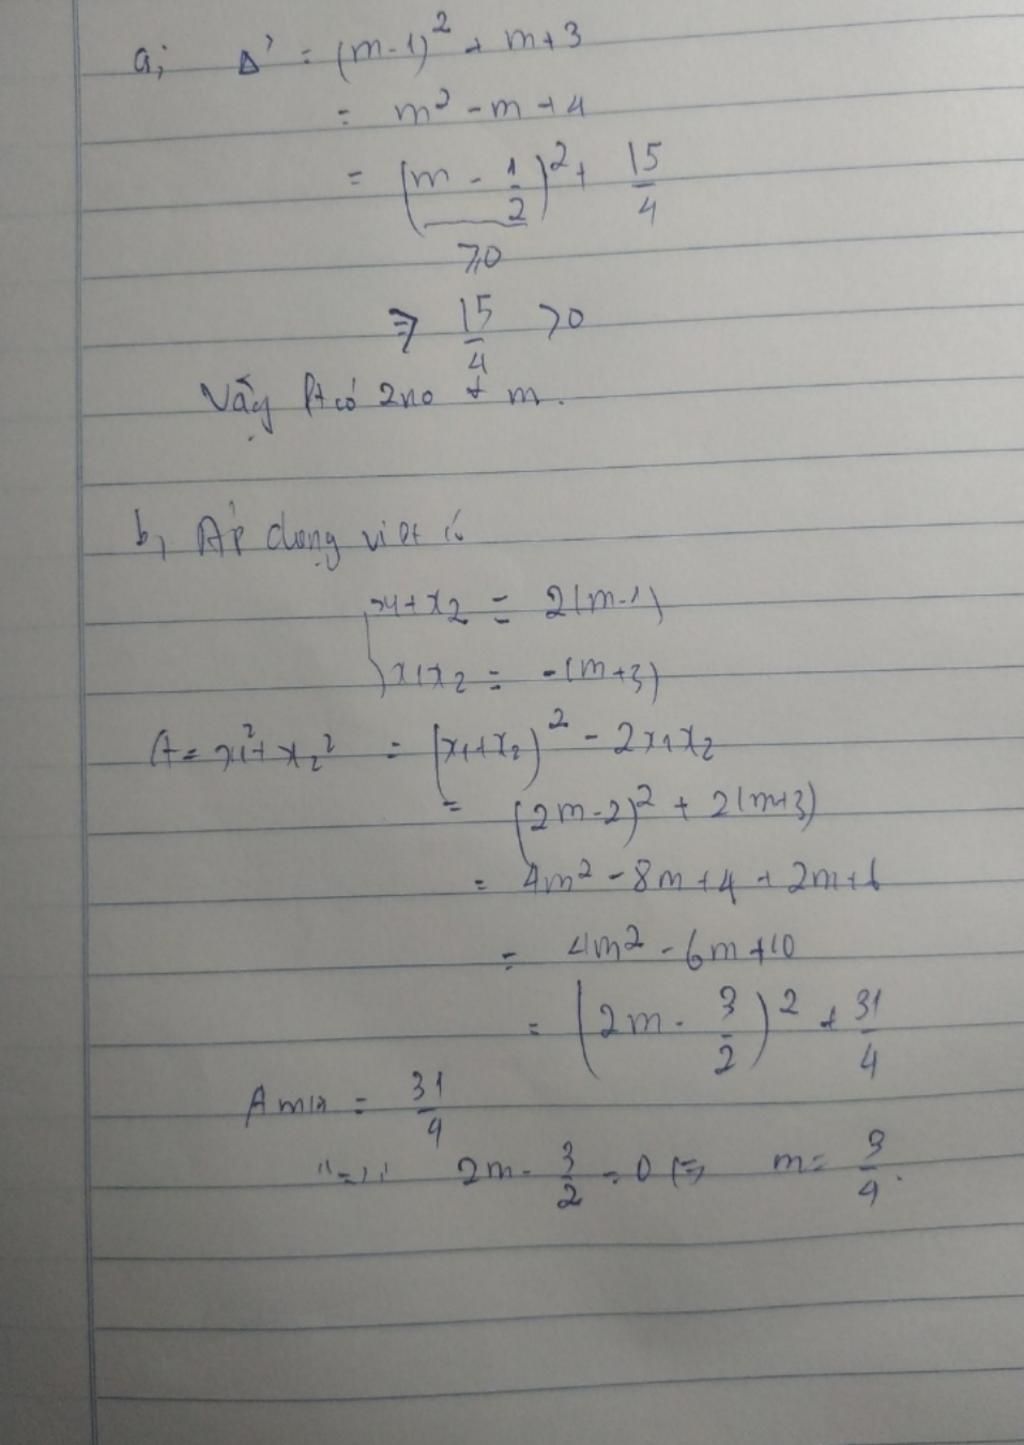 a; Δ' = (m-1)² + m+3
= m² - m + 4
= (m - 1/2)² + 15/4
≥0
≥ 15/4 >0
Vậy Pt có 2no ∀ m.
b, Áp dụng viet có
x1+x2 = 2(m-1)
x1x2 = -(m+3)
A = x1²+x2² = (x1+x2)² - 2x1x2
= (2m-2)² + 2(m+3)
= 4m² - 8m + 4 + 2m + 6
= 4m² - 6m + 10
= (2m - 3/2)² + 31/4
A min = 31/4
"=" 2m - 3/2 = 0 (=) m = 3/4.